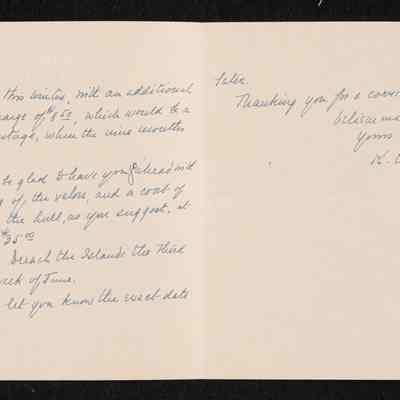 this winter, with an additional
charge of $8.50, which would be a
storage, when the nine months

be glad to have you go ahead with
of, the velox, and a coat of
the hull, as you suggest, at
$35.00
reach the Islands the third
week of June.
let you know the exact date
later.
Thanking you for a
believe me
Yours
K.